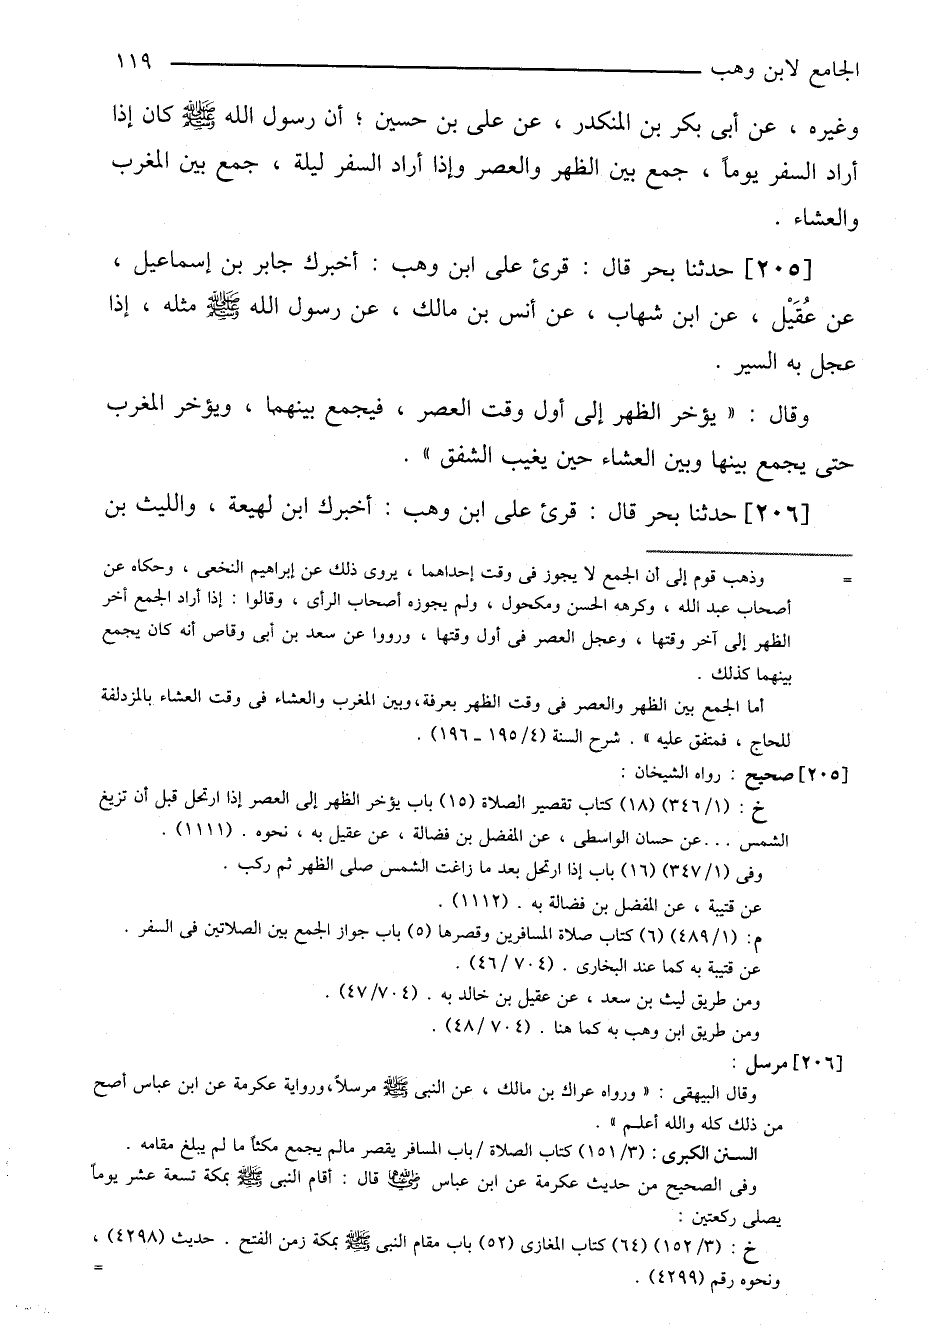 الجامع لابن وهب ١١٩
وغيره ، عن أبى بكر بن المنكدر ، عن على بن حسين ؛ أن رسول الله ﷺ كان إذا
أراد السفر يوماً ، جمع بين الظهر والعصر وإذا أراد السفر ليلة ، جمع بين المغرب
والعشاء .
[٢٠٥] حدثنا بحر قال : قرئ على ابن وهب : أخبرك جابر بن إسماعيل ،
عن عُقَيْل ، عن ابن شهاب ، عن أنس بن مالك ، عن رسول الله ﷺ مثله ، إذا
عجل به السير .
وقال : « يؤخر الظهر إلى أول وقت العصر ، فيجمع بينهما ، ويؤخر المغرب
حتى يجمع بينها وبين العشاء حين يغيب الشفق » .
[٢٠٦] حدثنا بحر قال : قرئ على ابن وهب : أخبرك ابن لهيعة ، والليث بن
= وذهب قوم إلى أن الجمع لا يجوز فى وقت إحداهما ، يروى ذلك عن إبراهيم النخعى ، وحكاه عن
أصحاب عبد الله ، وكرهه الحسن ومكحول ، ولم يجوزه أصحاب الرأى ، وقالوا : إذا أراد الجمع أخر
الظهر إلى آخر وقتها ، وعجل العصر فى أول وقتها ، ورووا عن سعد بن أبى وقاص أنه كان يجمع
بينهما كذلك .
أما الجمع بين الظهر والعصر فى وقت الظهر بعرفة،وبين المغرب والعشاء فى وقت العشاء بالمزدلفة
للحاج ، فمتفق عليه » . شرح السنة (٤/ ١٩٥ ـ ١٩٦) .
[٢٠٥] صحيح : رواه الشيخان :
خ : (١/ ٣٤٦) (١٨) كتاب تقصير الصلاة (١٥) باب يؤخر الظهر إلى العصر إذا ارتحل قبل أن تزيغ
الشمس ...عن حسان الواسطى ، عن المفضل بن فضالة ، عن عقيل به ، نحوه . (١١١١) .
وفى (١/ ٣٤٧) (١٦) باب إذا ارتحل بعد ما زاغت الشمس صلى الظهر ثم ركب .
عن قتيبة ، عن المفضل بن فضالة به . (١١١٢) .
م: (١/ ٤٨٩) (٦) كتاب صلاة المسافرين وقصرها (٥) باب جواز الجمع بين الصلاتين فى السفر .
عن قتيبة به كما عند البخارى . (٧٠٤ /٤٦) .
ومن طريق ليث بن سعد ، عن عقيل بن خالد به . (٧٠٤ /٤٧) .
ومن طريق ابن وهب به كما هنا . (٧٠٤ /٤٨) .
[٢٠٦] مرسل :
وقال البيهقى : « ورواه عراك بن مالك ، عن النبى ﷺ مرسلاً،ورواية عكرمة عن ابن عباس أصح
من ذلك كله والله أعلم » .
السنن الكبرى : (٣/ ١٥١) كتاب الصلاة /باب المسافر يقصر مالم يجمع مكثاً ما لم يبلغ مقامه .
وفى الصحيح من حديث عكرمة عن ابن عباس رضي الله عنهما قال : أقام النبى ﷺ بمكة تسعة عشر يوماً
يصلى ركعتين :
خ : (٣/ ١٥٢) (٦٤) كتاب المغازى (٥٢) باب مقام النبى ﷺ بمكة زمن الفتح . حديث (٤٢٩٨) ،
ونحوه رقم (٤٢٩٩) . =